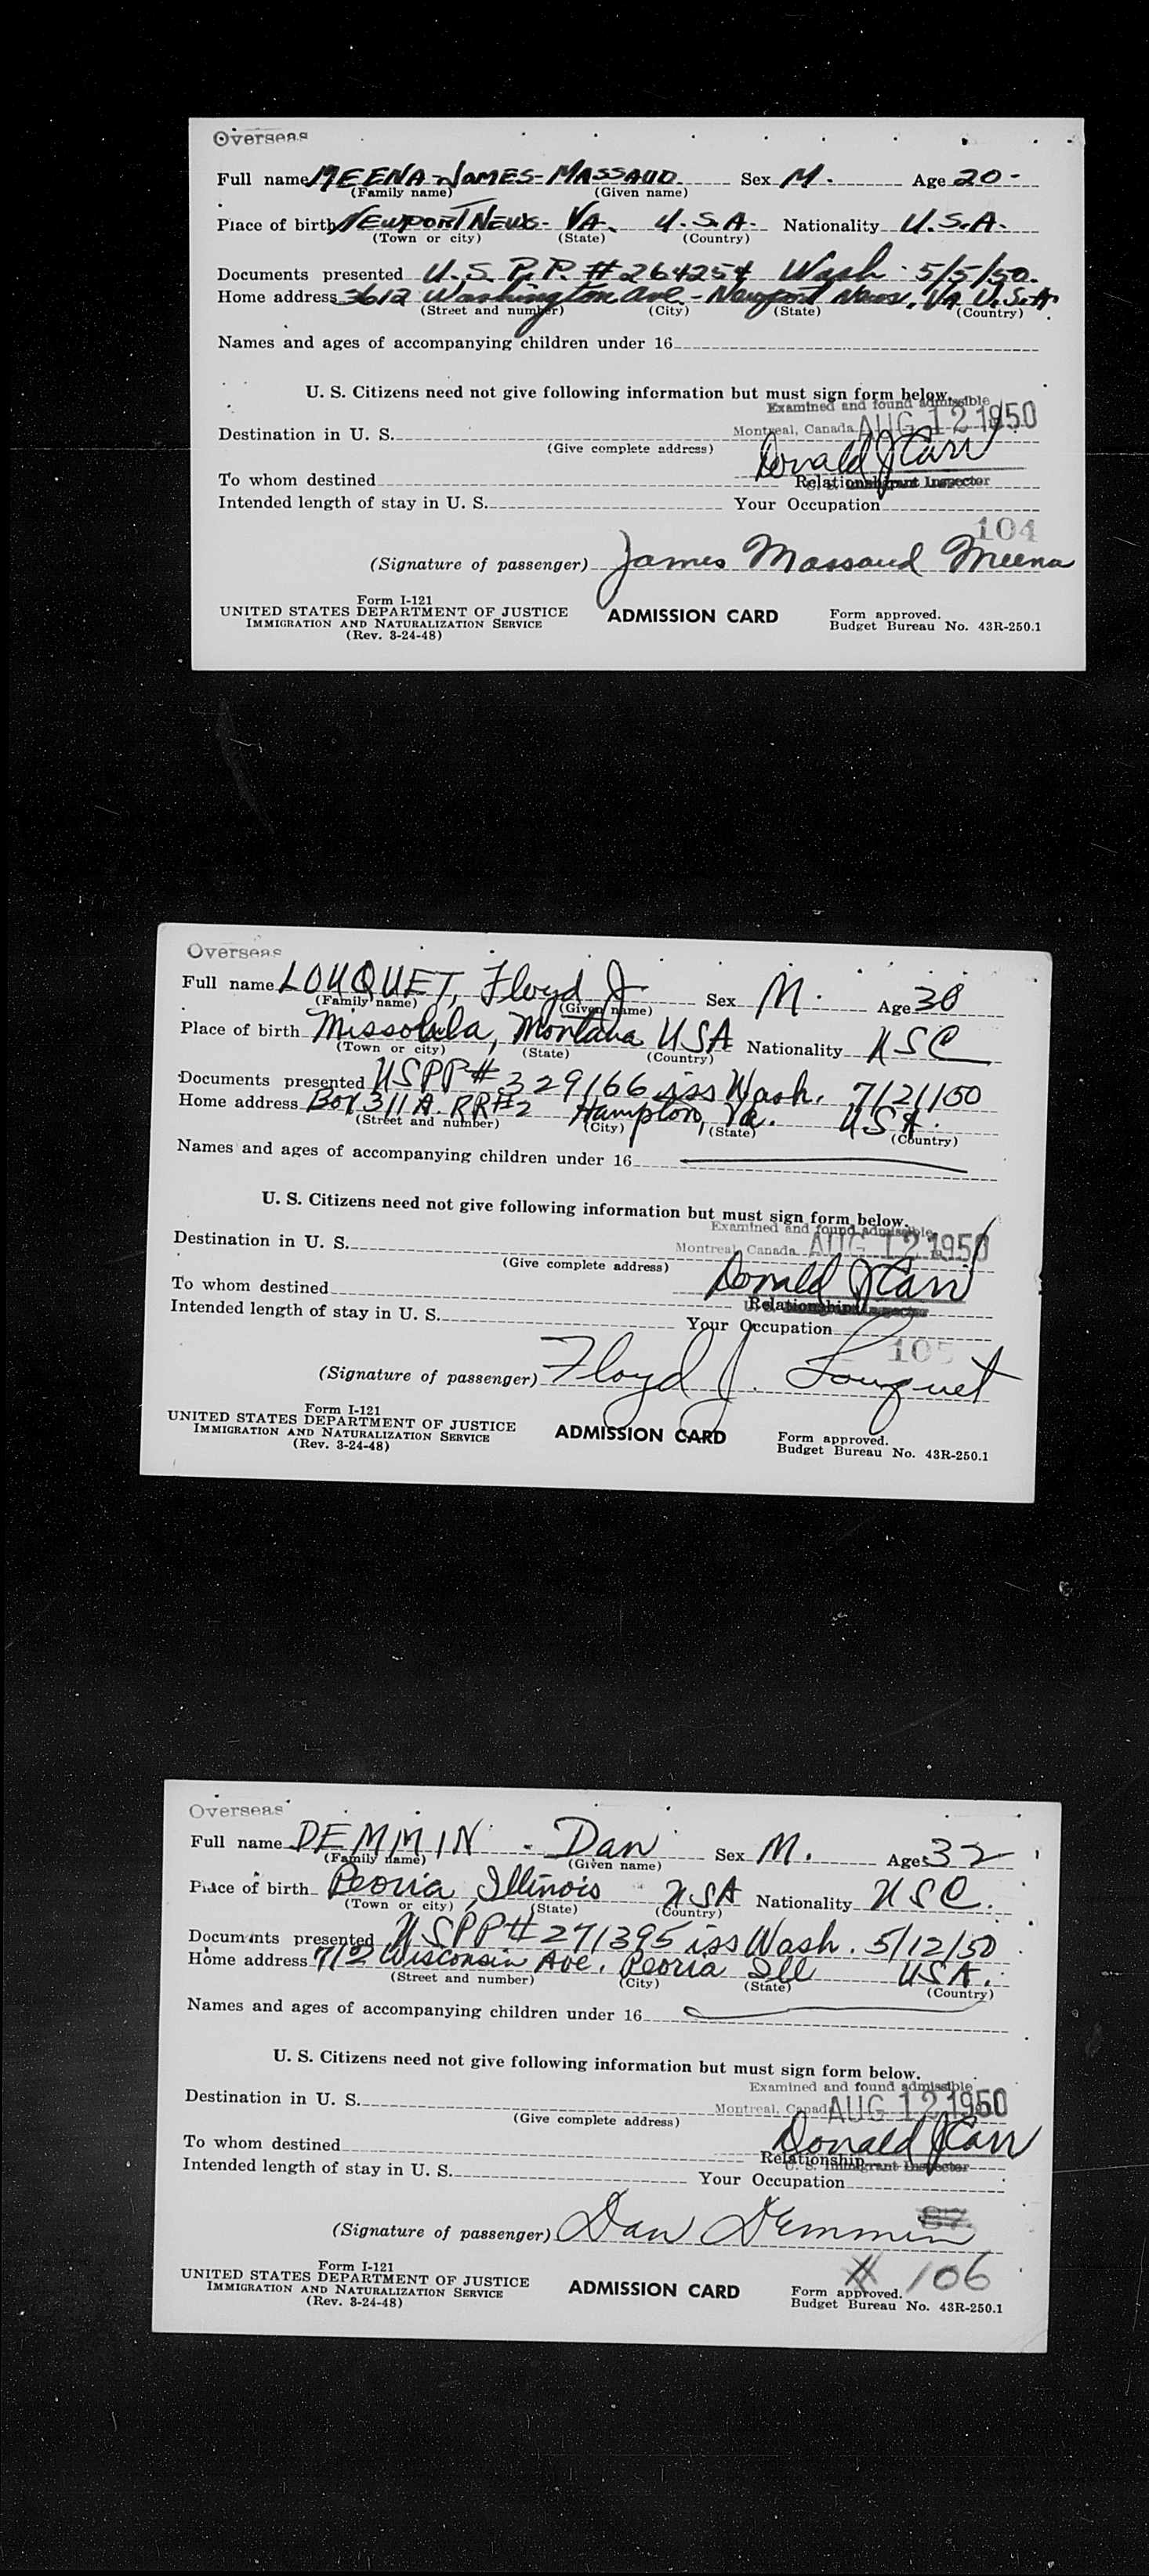 Overseas
Full name MEENA-JAMES-MASSAUD. Sex M. Age 20-
(Family name) (Given name)
Place of birth NEWPORT NEWS- VA. U.S.A- Nationality U.S.A-
(Town or city) (State) (Country)
Documents presented U.S.P.P. # 264254 Wash 5/5/50.
Home address 3612 Washington Ave.- Newport News, VA U.S.A.
(Street and number) (City) (State) (Country)
Names and ages of accompanying children under 16
U. S. Citizens need not give following information but must sign form below.
Examined and found admissible
Destination in U. S. Montreal, Canada AUG 12 1950
(Give complete address)
Donald J Carr
To whom destined Relationship
Immigrant Inspector
Intended length of stay in U. S. Your Occupation
104
(Signature of passenger) James Massaud Meena
Form I-121
UNITED STATES DEPARTMENT OF JUSTICE ADMISSION CARD Form approved.
IMMIGRATION AND NATURALIZATION SERVICE Budget Bureau No. 43R-250.1
(Rev. 3-24-48)
Overseas
Full name LOUQUET, Floyd J Sex M. Age 38
(Family name) (Given name)
Place of birth Missoula, Montana USA Nationality USC
(Town or city) (State) (Country)
Documents presented USPP# 329166 iss Wash. 7/21/50
Home address Box 311A. RR#2 Hampton, Va. USA.
(Street and number) (City) (State) (Country)
Names and ages of accompanying children under 16
U. S. Citizens need not give following information but must sign form below.
Examined and found admissible
Destination in U. S. Montreal, Canada AUG 12 1950
(Give complete address)
Donald J Carr
To whom destined Relationship
Intended length of stay in U. S. Your Occupation
105
(Signature of passenger) Floyd J. Louquet
Form I-121
UNITED STATES DEPARTMENT OF JUSTICE ADMISSION CARD Form approved.
IMMIGRATION AND NATURALIZATION SERVICE Budget Bureau No. 43R-250.1
(Rev. 3-24-48)
Overseas
Full name DEMMIN - Dan Sex M. Age 32
(Family name) (Given name)
Place of birth Peoria, Illinois USA Nationality USC.
(Town or city) (State) (Country)
Documents presented USPP# 271395 iss Wash. 5/12/50
Home address 712 Wisconsin Ave. Peoria Ill USA.
(Street and number) (City) (State) (Country)
Names and ages of accompanying children under 16
U. S. Citizens need not give following information but must sign form below.
Examined and found admissible
Destination in U. S. Montreal, Canada AUG 12 1950
(Give complete address)
Donald J Carr
To whom destined Relationship
U. S. Immigrant Inspector
Intended length of stay in U. S. Your Occupation
(Signature of passenger) Dan Demmin
# 106
Form I-121
UNITED STATES DEPARTMENT OF JUSTICE ADMISSION CARD Form approved.
IMMIGRATION AND NATURALIZATION SERVICE Budget Bureau No. 43R-250.1
(Rev. 3-24-48)